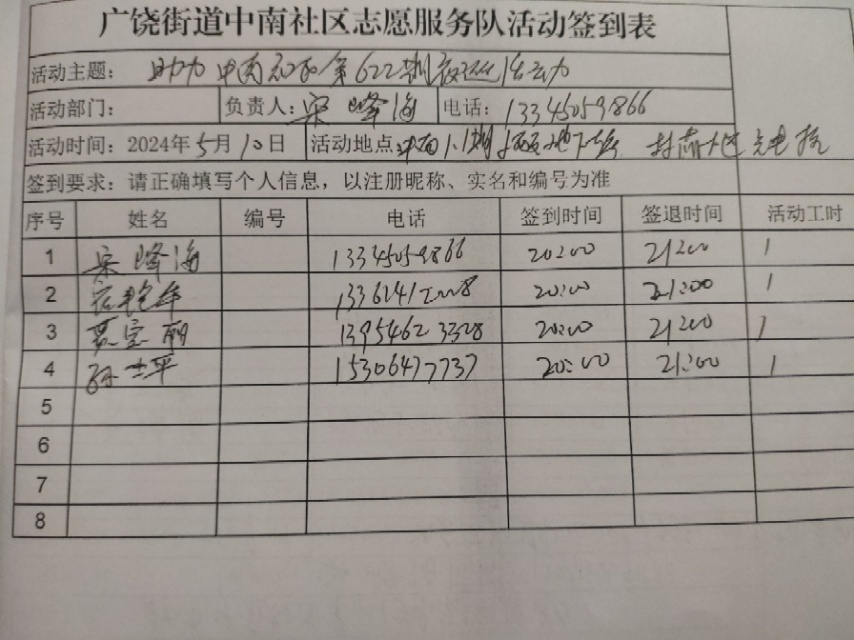 广饶街道中南社区志愿服务队活动签到表
活动主题: 助力中南社区第622期夜巡活动
活动部门: 负责人: 宋峰海 电话: 13345059866
活动时间: 2024年5月10日 活动地点: 中南1.1期 地下车 充电桩
签到要求: 请正确填写个人信息，以注册昵称、实名和编号为准
序号 姓名 编号 电话 签到时间 签退时间 活动工时
1 宋峰海 13345059866 20:00 21:00 1
2 20:00 21:00 1
3 宝丽 13954623328 20:00 21:00 1
4 孙士平 15306477737 20:00 21:00 1
5
6
7
8